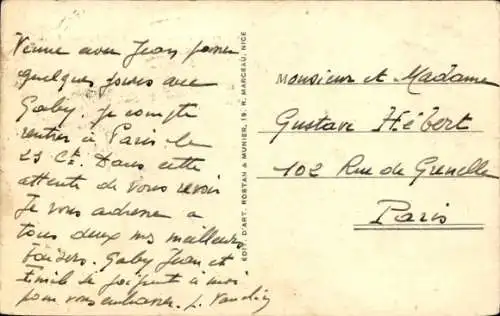 Venue avec Jean passer
quelques jours avec
Gaby. Je compte
rentrer à Paris le
25 Ct. Dans cette
attente de vous revoir
Je vous adresse a
tous deux mes meilleurs
baisers. Gaby Jean et
Emile se joignent à moi
pour vous embrasser.
EDIT. D'ART. ROSTAN & MUNIER, 15, R. MARCEAU, NICE
Monsieur et Madame
Gustave Hébert
102 Rue de Grenelle
Paris